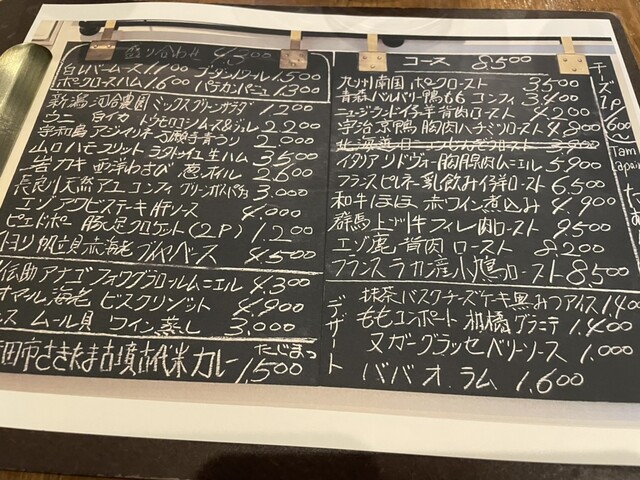 盛り合わせ 4,300
白レバームース 1,100 ゴーダンドゥール 1,500
ポークロースハム 1,600 パテカンパーニュ 1,300
新潟 河合農園 ミックスグリーンサラダ 1,200
ウニ 白イカ トウモロコシムース&ジュレ 2,200
宇和島 アジ マリネ 万願寺青うり 2,000
山口ハモフリット ラタトゥイユ 生ハム 3,500
岩カキ 西洋わさび 葱オイル 2,600
長良川天然アユ コンフィ グリーンガスパチョ 3,000
エゾアワビステーキ 肝ソース 4,000
ピエドポー 豚足クロケット(2P) 1,200
帆立貝 赤海老 ブイヤベース 4,500
伝助アナゴ フォワグラ ロール ムニエル 4,300
オマール海老 ビスクリゾット 4,900
ムール貝 ワイン蒸し 3,000
田市さきたま古墳古代米カレー 1,500
たじまっ
コース 8,500
九州南国 ポークロースト 3,500
青森バルバリー鴨 モモ コンフィ 3,400
ニュージーランド 仔羊 背肉ロースト 4,200
宇治京鴨 胸肉ハチミツロースト 4,800
イタリア リドヴォー 胸腺肉ムニエル 5,900
フランス ピレネー 乳飲み仔羊ロースト 6,500
和牛ほほ 赤ワイン煮込み 4,900
群馬 上州牛フィレ肉ロースト 9,500
エゾ鹿 背肉 ロースト 8,200
フランス ラカン産 小鳩ロースト 8,500
デザート
抹茶バスクチーズケーキ黒みつアイス 1,400
ももコンポート 柑橘グラニテ 1,400
ヌガーグラッセ ベリーソース 1,000
ババ オ ラム 1,600
チーズ
1P
600